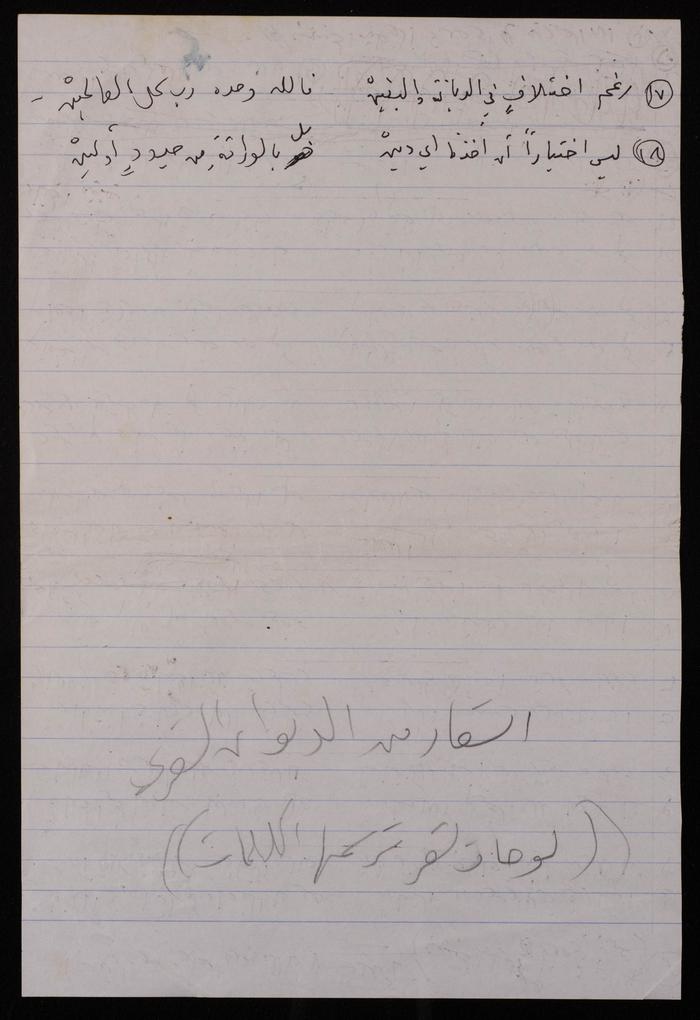 ١٧ رغم اختلافٍ في الديانة والبنينْ فالله وحده رب كل العالمينْ -
١٨ ليس اختياراً أن أخذنا اي دينْ بل بالوراثةِ من جدودٍ أولينْ
اشعار من الديوان الشعري
((لوحات شعر ترسمها الكلمات))